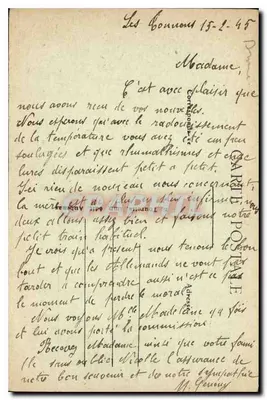 Les Connons 15-2-45
Madame,
C'est avec plaisir que
nous avons rien de vos nouvelles.
Nous esperons qu'avec le radoucissement
de la temperature vous avez été un peu
soulagée et que rhumathismes et enge
lures disparaissent petit a petit.
Ici rien de nouveau nous concernant,
la mère est
deux allons assez bien et faisons notre
petit train habituel.
Je crois qu'a present nous tenons le bon
bout et que les Allemands ne vont pas
tarder a comprendre aussi n'est ce pas
le moment de perdre le moral.
Nous voyons Mlle Madelaine qq fois
et lui avons porté la commission.
Recevez Madame ainsi que votre fami
lle sans oublier Nicolle l'assurance de
notre bon souvenir et de notre sympathie
CARTE POSTALE
Correspondance
Adresse